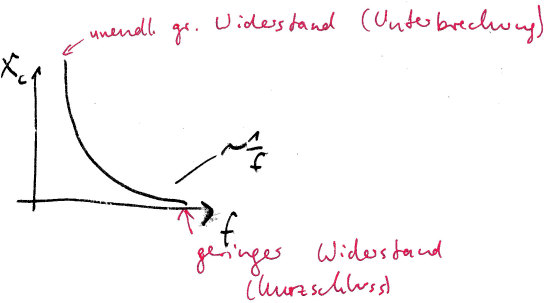 unendl. gr. Widerstand (Unterbrechung)
Xc
~1/f
f
geringes Widerstand
(Kurzschluss)